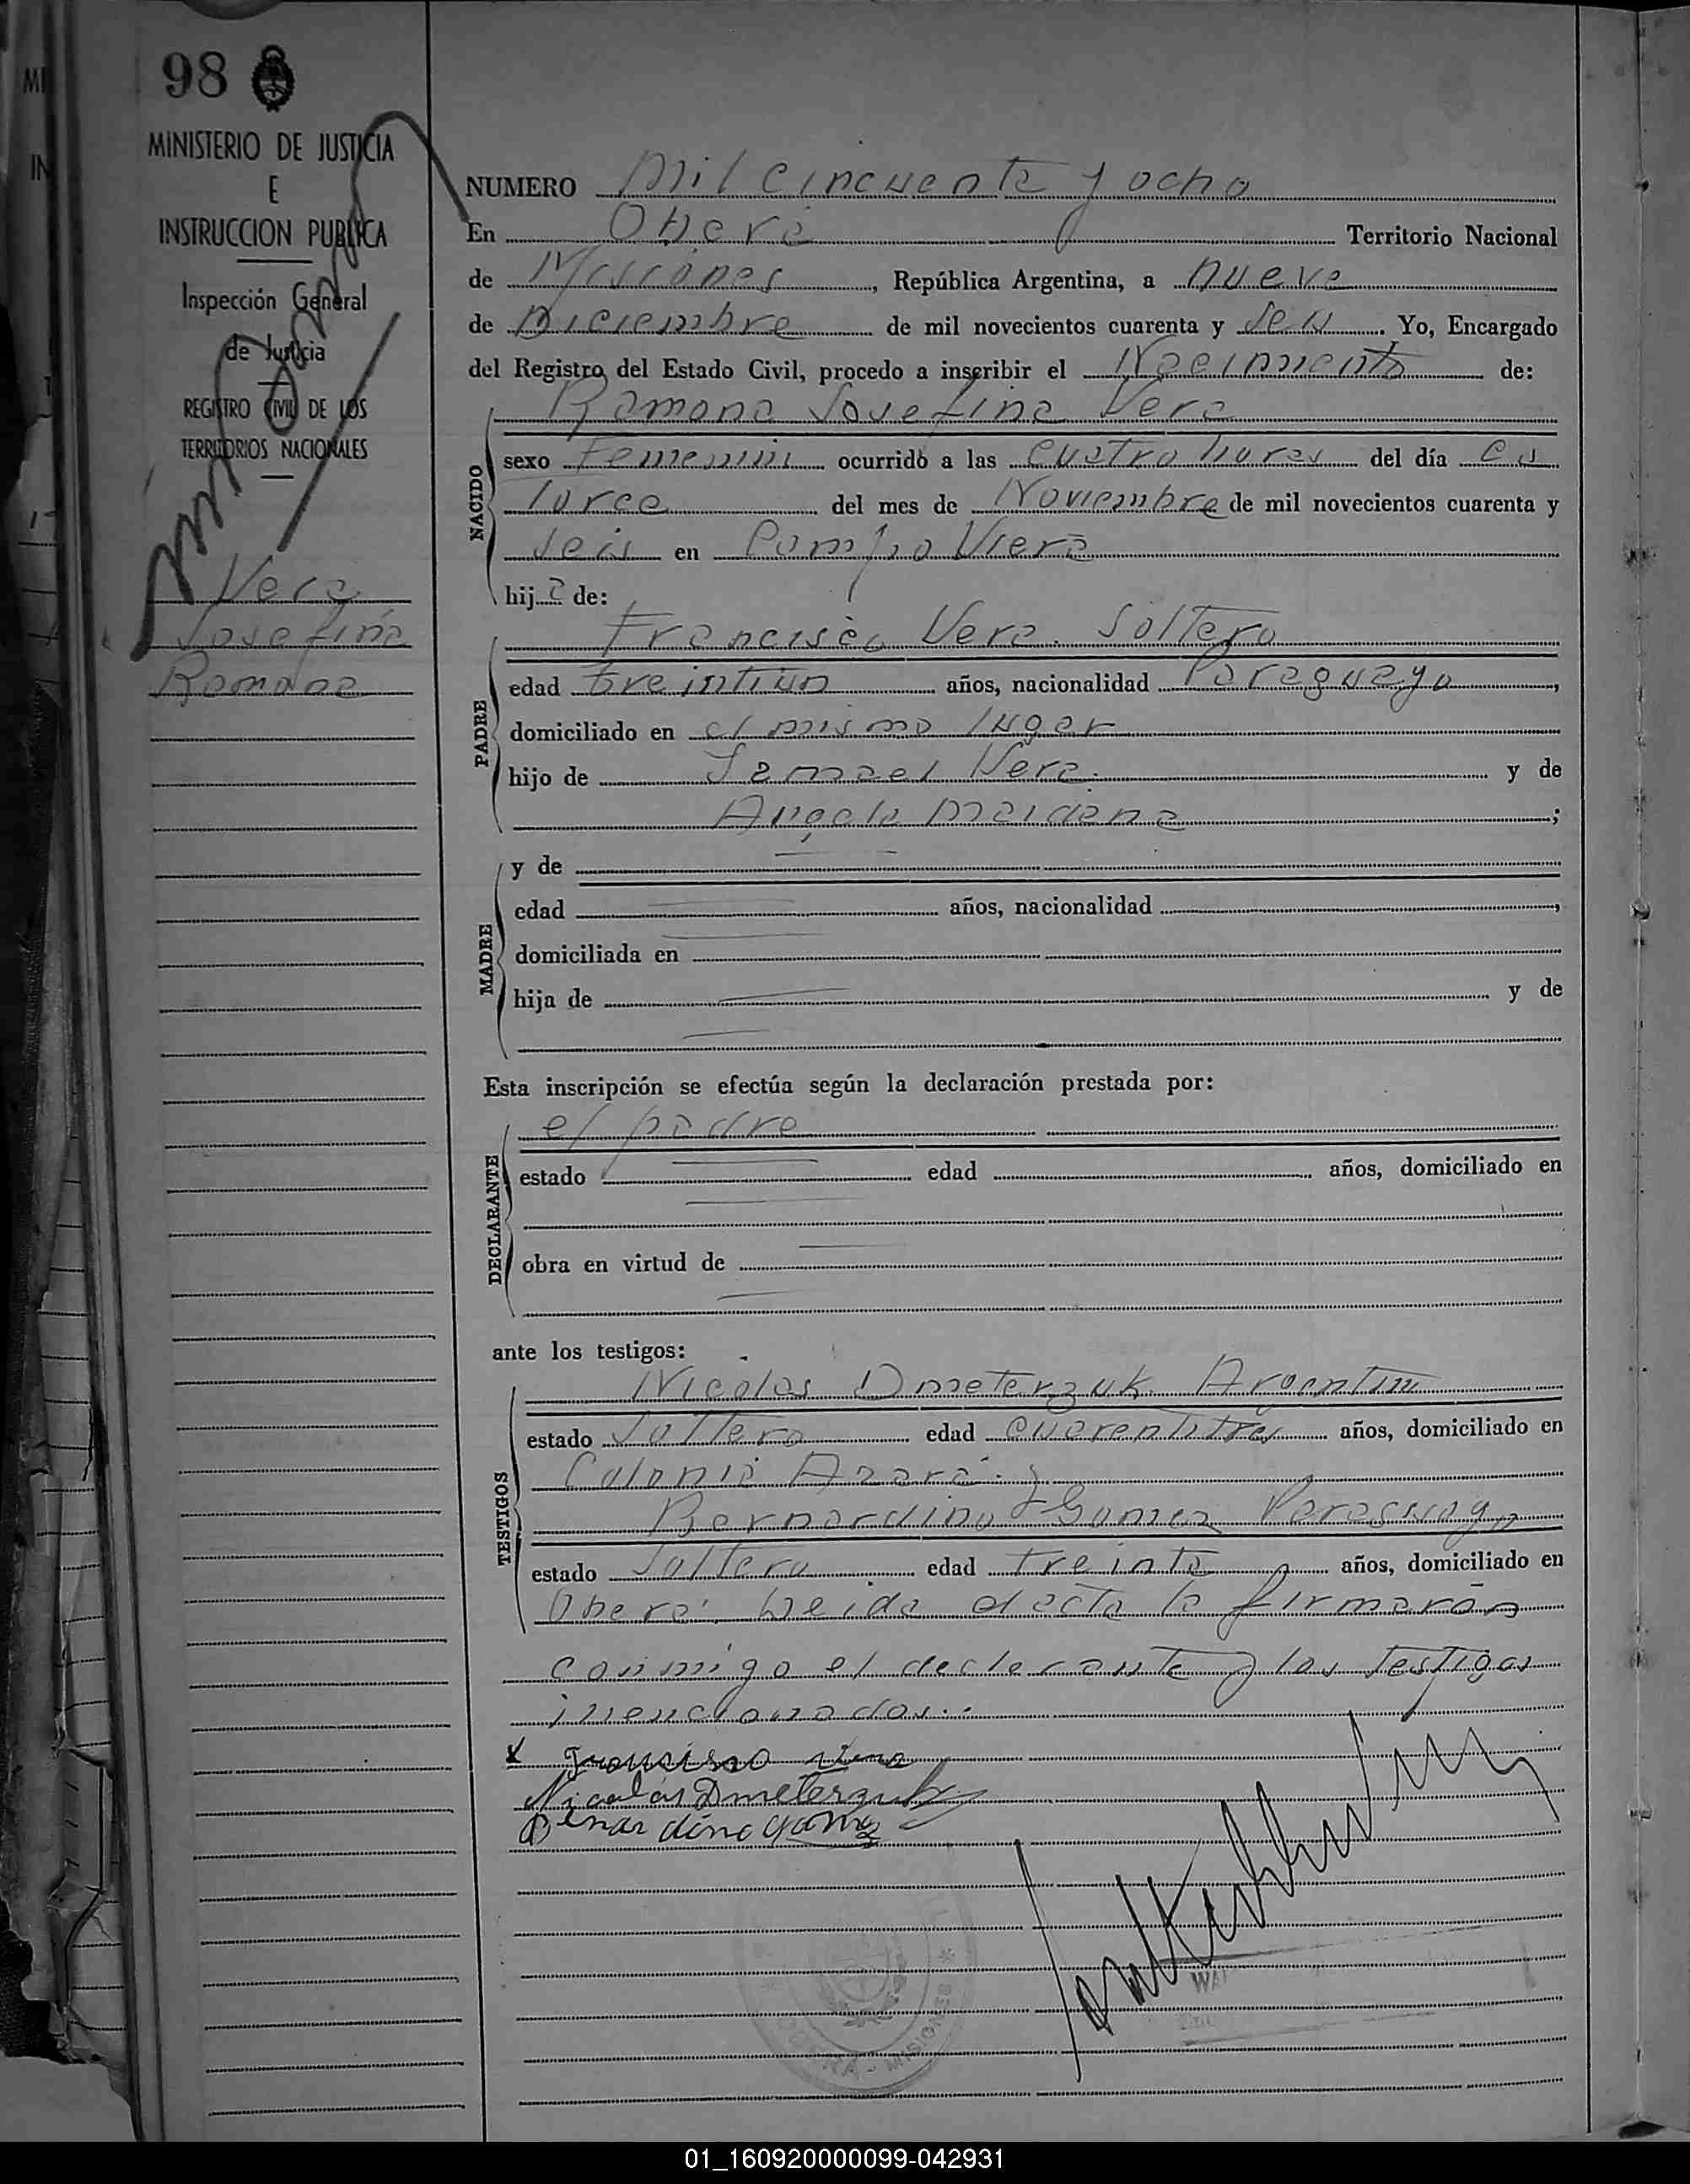 98
MINISTERIO DE JUSTICIA
E
INSTRUCCION PUBLICA
Inspección General
de Justicia
REGISTRO CIVIL DE LOS
TERRITORIOS NACIONALES
Vera
Josefina
Ramona
NUMERO Mil cincuenta y ocho
En Oberá Territorio Nacional
de Misiones, República Argentina, a nueve
de Diciembre de mil novecientos cuarenta y seis. Yo, Encargado
del Registro del Estado Civil, procedo a inscribir el Nacimiento de:
Ramona Josefina Vera
NACIDO
sexo Femenino ocurrido a las cuatro horas del día ca
torce del mes de Noviembre de mil novecientos cuarenta y
seis en Campo Viera
hija de:
Francisco Vera. Soltero
PADRE
edad treintiun años, nacionalidad Paraguayo,
domiciliado en el mismo lugar
hijo de Vera. y de
Angela Maidana;
MADRE
y de
edad años, nacionalidad ,
domiciliada en
hija de y de
Esta inscripción se efectúa según la declaración prestada por:
el padre
DECLARANTE
estado edad años, domiciliado en
obra en virtud de
ante los testigos:
Nicolas Dmeterzuk. Argentino
TESTIGOS
estado Soltero edad cuarentitres años, domiciliado en
Colonia Azara. y
Bernardino Gomez Paraguayo
estado Soltero edad treinta años, domiciliado en
Oberá. Leida el acta la firmarón
conmigo el declarante y los testigos
mencionados..
x Francisco Vera
Nicolás Dmeterzuk
Benardino Gomez
OBERA - MISIONES
01_160920000099-042931